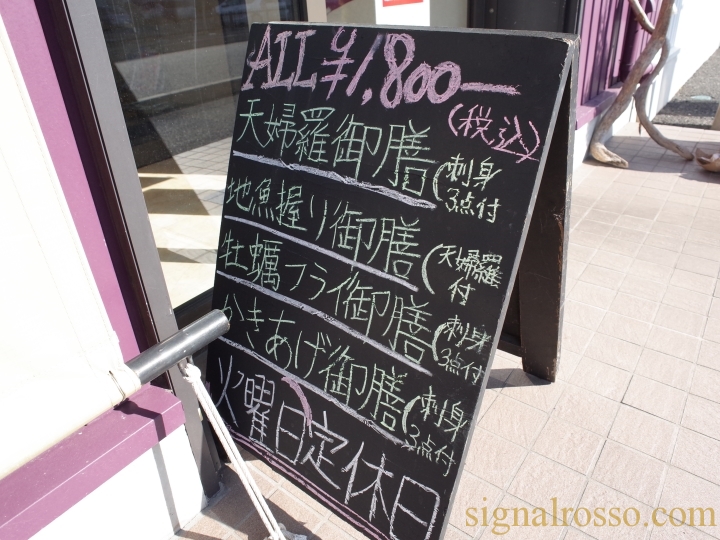 ALL ¥1,800—
(税込)
天婦羅御膳(刺身3点付
地魚握り御膳(天婦羅付
牡蠣フライ御膳(刺身3点付
かきあげ御膳(刺身3点付
火曜日定休日
signalrosso.com